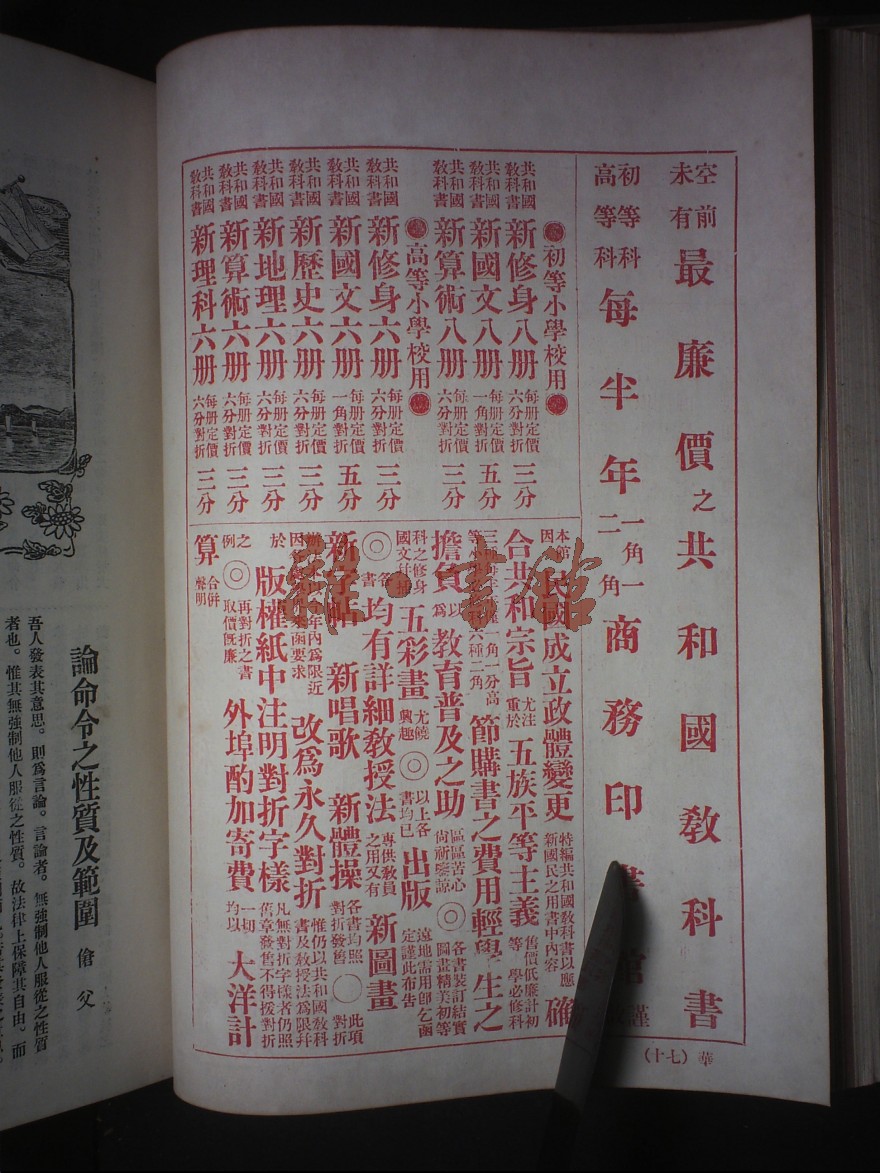 空前未有最廉價之共和國教科書
初等科高等科每半年一角一二角商務印書館謹
初等小學校用
共和國教科書新修身八册每册定價六分對折三分
共和國教科書新國文八册每册定價一角對折五分
共和國教科書新算術八册每册定價六分對折三分
高等小學校用
共和國教科書新修身六册每册定價六分對折三分
共和國教科書新國文六册每册定價一角對折五分
共和國教科書新歷史六册每册定價六分對折三分
共和國教科書新地理六册每册定價六分對折三分
共和國教科書新算術六册每册定價六分對折三分
共和國教科書新理科六册每册定價六分對折三分
民國成立政體變更特編共和國教科書以應新國民之用書中內容確
合共和宗旨尤注重於五族平等主義售價低廉計初等學必修科
三一角一分高等六種二角節購書之費用輕學生之
擔負以為教育普及之助區區苦心尚祈鑒諒◎各書裝訂結實圖畫精美初等
科之修身國文五彩畫尤饒興趣◎以上各書均已出版遠地需用卽乞函定謹此布告
◎各書均有詳細教授法專供教員之用又有新圖畫
新字帖 新唱歌 新體操各書均照對折發售〇此項對折
年內為限近因來函要求改為永久對折惟仍以共和國教科書及教授法為限幷
於版權紙中注明對折字樣凡無對折字樣者仍照舊章發售不得援對折
之例◎再對折之書取價旣廉外埠酌加寄費一切均以大洋計
算合併聲明
華(七十)
雅·書館
論命令之性質及範圍 傖父
吾人發表其意思。則爲言論。言論者。無強制他人服從之性質
者也。惟其無強制他人服從之性質。故法律上保障其自由。而